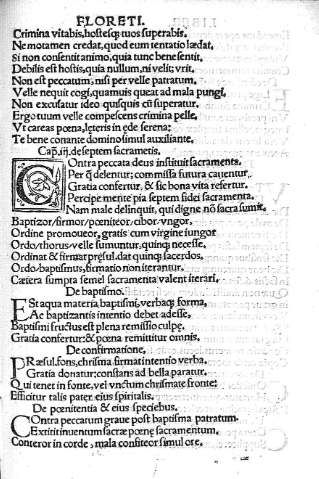 FLORETI.
Crimina vitabis, hostesq; tuos superabis.
Ne motamen credat, quod eum tentatio lædat,
Si non consentit animo, quia tunc bene sentit.
Debilis est hostis, quia nullum, ni velit, vrit.
Non est peccatum, nisi per velle patratum.
Velle nequit cogi, quamuis queat ad mala pungi,
Non excusatur ideo quisquis cū superatur.
Ergo tuum velle compescens crimina pelle.
Vt careas pœna, leteris in ęde serena:
Te bene conante domino simul auxiliante.
Cap. iij. de septem sacramētis.
Contra peccata deus instituit sacramenta.
Per q̃ delentur; commissa futura cauentur
Gratia confertur, & sic bona vita refertur.
Percipe mente pia septem fidei sacramenta.
Nam male delinquit, qui digne nō sacra sumit.
Baptizor, firmor, pœniteor, cibor, vngor,
Ordine promoueor, gratis cum virgine iungor
Ordo, thorus, velle sumuntur, quinq; necesse,
Ordinat & firmat præsul, dat quinq; sacerdos,
Ordo, baptismus, firmatio non iterantur.
Cætera sumpta semel sacramenta valent iterari.
De baptismo.
Est aqua materia baptismi, verbaq; forma,
Ac baptizantis intentio debet adesse,
Baptismi fructus est plena remissio culpę.
Gratia confertur: & pœna remittitur omnis.
De confirmatione.
Præsul, fons, chrisma firmat intentio verba.
Gratia donatur; constans ad bella paratur.
Qui tenet in fonte, vel vnctum chrismate fronte:
Efficitur talis pater eius spiritalis.
De pœnitentia & eius speciebus.
Contra peccatum graue post baptisma patratum.
Extitit inuentum sacræ pœnę sacramentum,
Conteror in corde, mala confiteor simul ore,